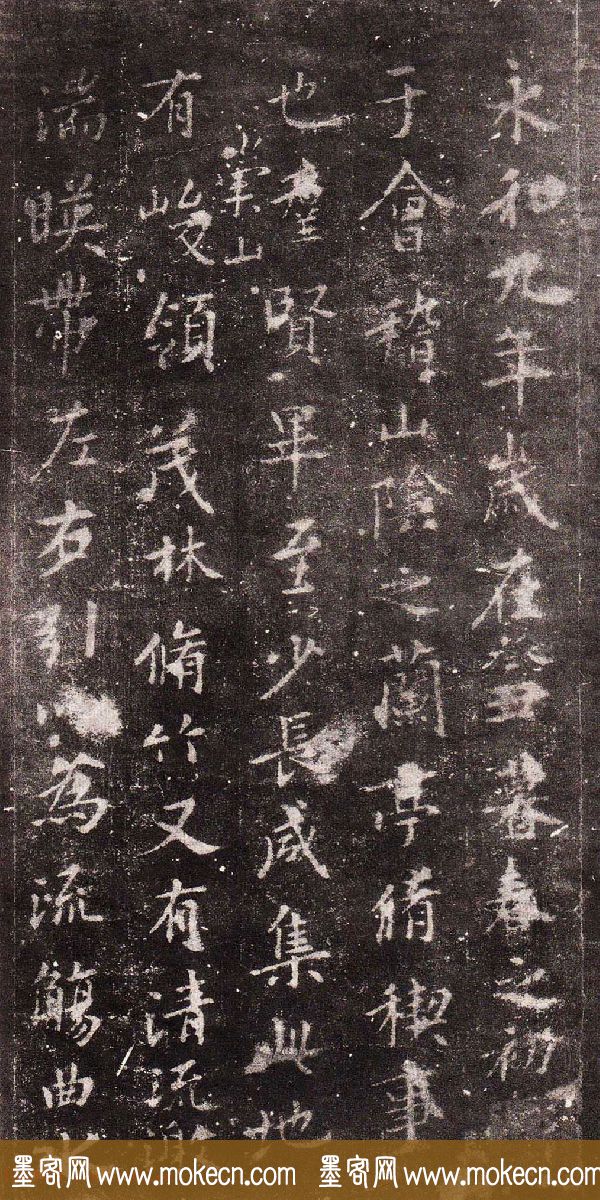 永和九年歲在癸丑暮春之初
于會稽山陰之蘭亭脩稧事
也羣賢畢至少長咸集此地
有崇山峻領茂林脩竹又有清流激
湍暎帶左右引以為流觴曲水
墨客网 www.mokecn.com 墨客网 www.mokecn.com